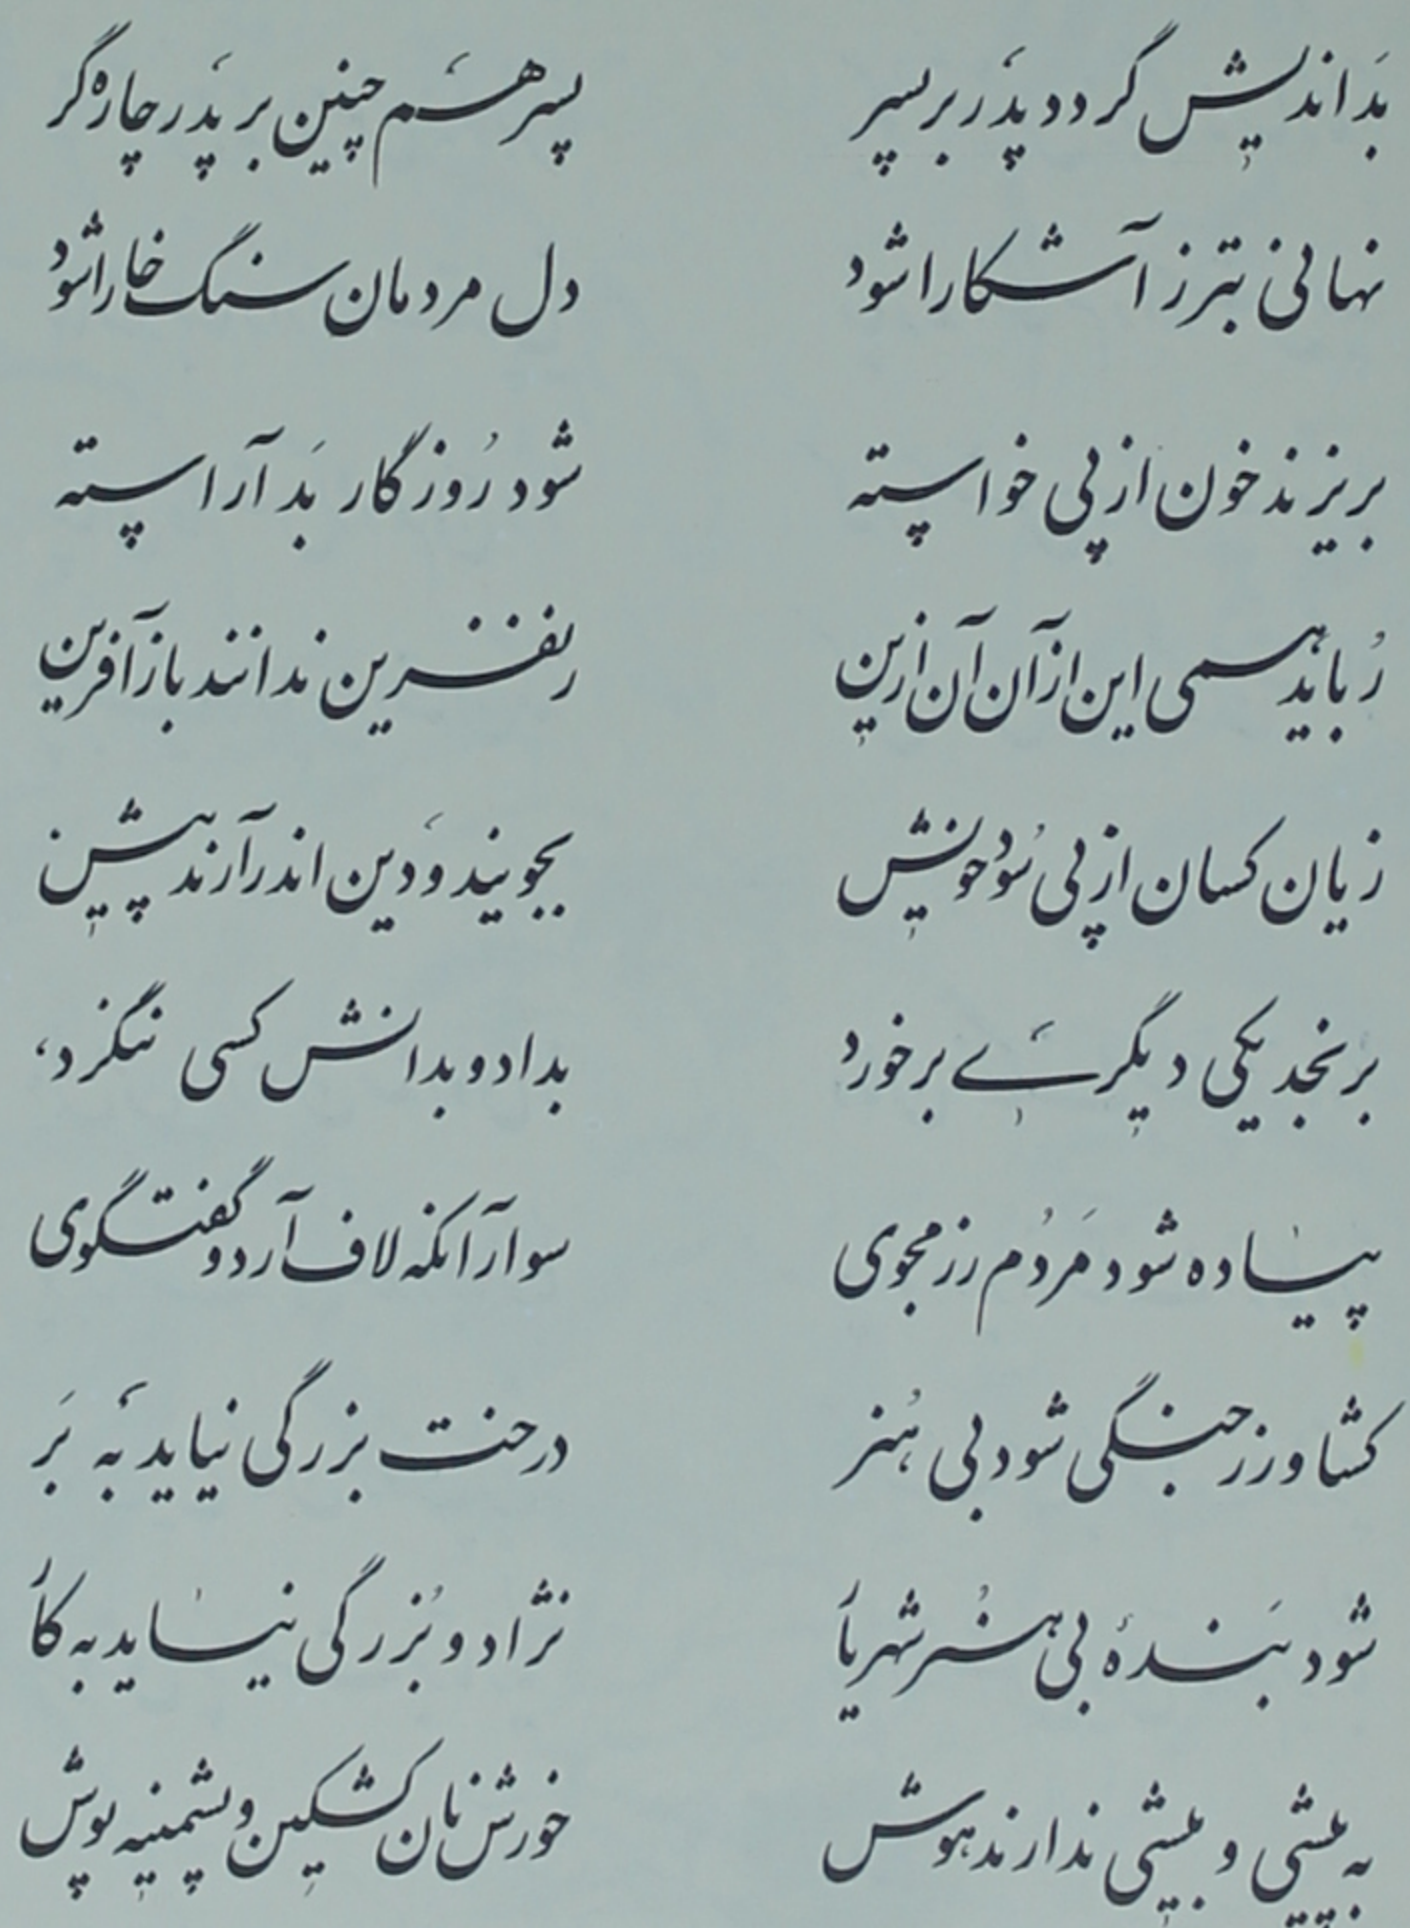 بَداندیش گردد پدَر بر پسر    پسر هَم چنین بر پدَر چاره‌گر
نهانی بتر ز آشکارا شود    دل مردمان سنگ خارا شود
بریزند خون از پی خواسته    شود رُوزگار بَد آراسته
رُباید همی این از آن آن ازین    ز نفرین ندانند باز آفرین
زیان کسان از پی سُود خویش    بجویند و دین اندر آرند پیش
برنجد یکی دیگرَے برخورد    بداد و بدانش کسی ننگرد،
پیاده شود مَردُم رزمجوی    سوار آنکه لاف آرد و گفتگوی
کشاورز جنگی شود بی هُنر    درخت بزرگی نیاید بَه بَر
شود بَندهٔ بی هُنر شهریار    نژاد و بُزرگی نیاید به کار
به گیتی و بیشی ندارند هوش    خورش نان کشکین و پشمینه پوش